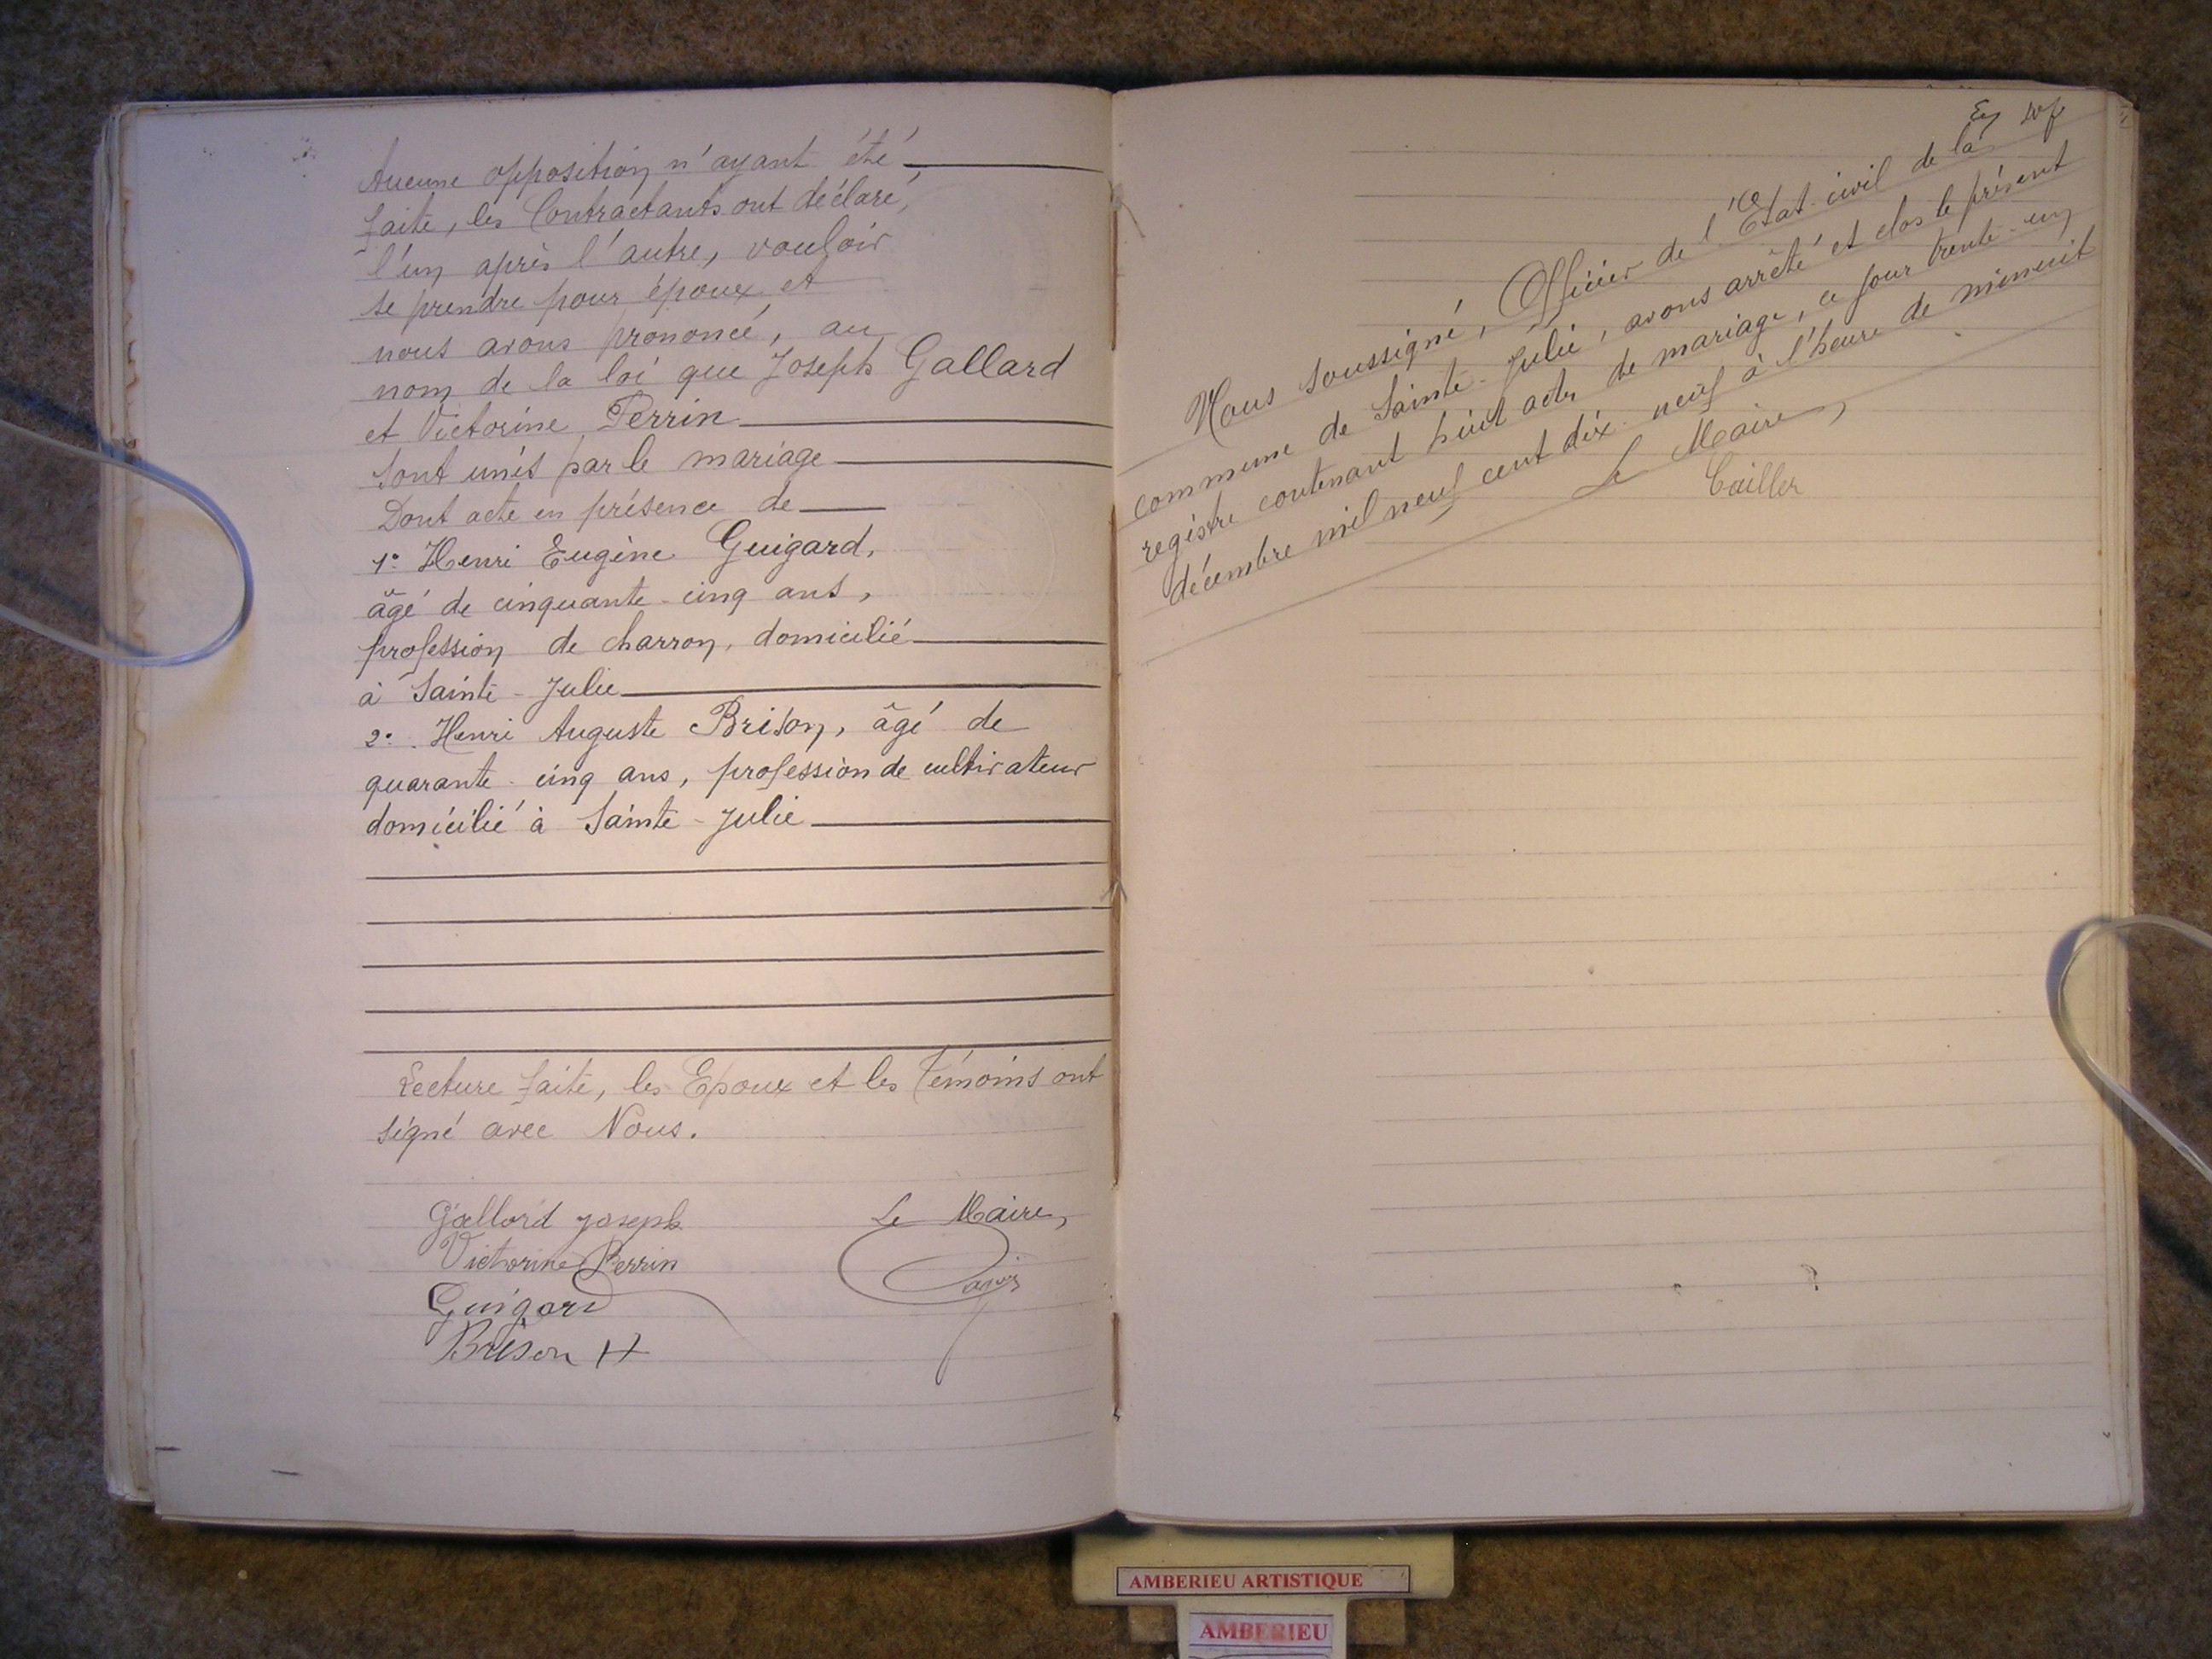 Aucune opposition n'ayant été
faite, les Contractants ont déclaré,
l'un après l'autre, vouloir
se prendre pour époux et
nous avons prononcé, au
nom de la loi que Joseph Gallard
et Victorine Perrin
sont unis par le mariage
Dont acte en présence de
1º Henri Eugène Guigard,
âgé de cinquante-cinq ans,
profession de charron, domicilié
à Sainte-Julie
2º. Henri Auguste Brison, âgé de
quarante-cinq ans, profession de cultivateur
domicilié à Sainte-Julie
Lecture faite, les Epoux et les témoins ont
signé avec Nous.
Gallard Joseph
Victorine Perrin
Guigard
Brison H
Le Maire,
Nous soussigné, Officier de l'Etat-civil de la
commune de Sainte-Julie, avons arrêté et clos le présent
registre contenant huit actes de mariage, ce jour trente-un
décembre mil neuf cent dix-neuf à l'heure de minuit
Le Maire,
Cailler
AMBERIEU ARTISTIQUE
AMBERIEU